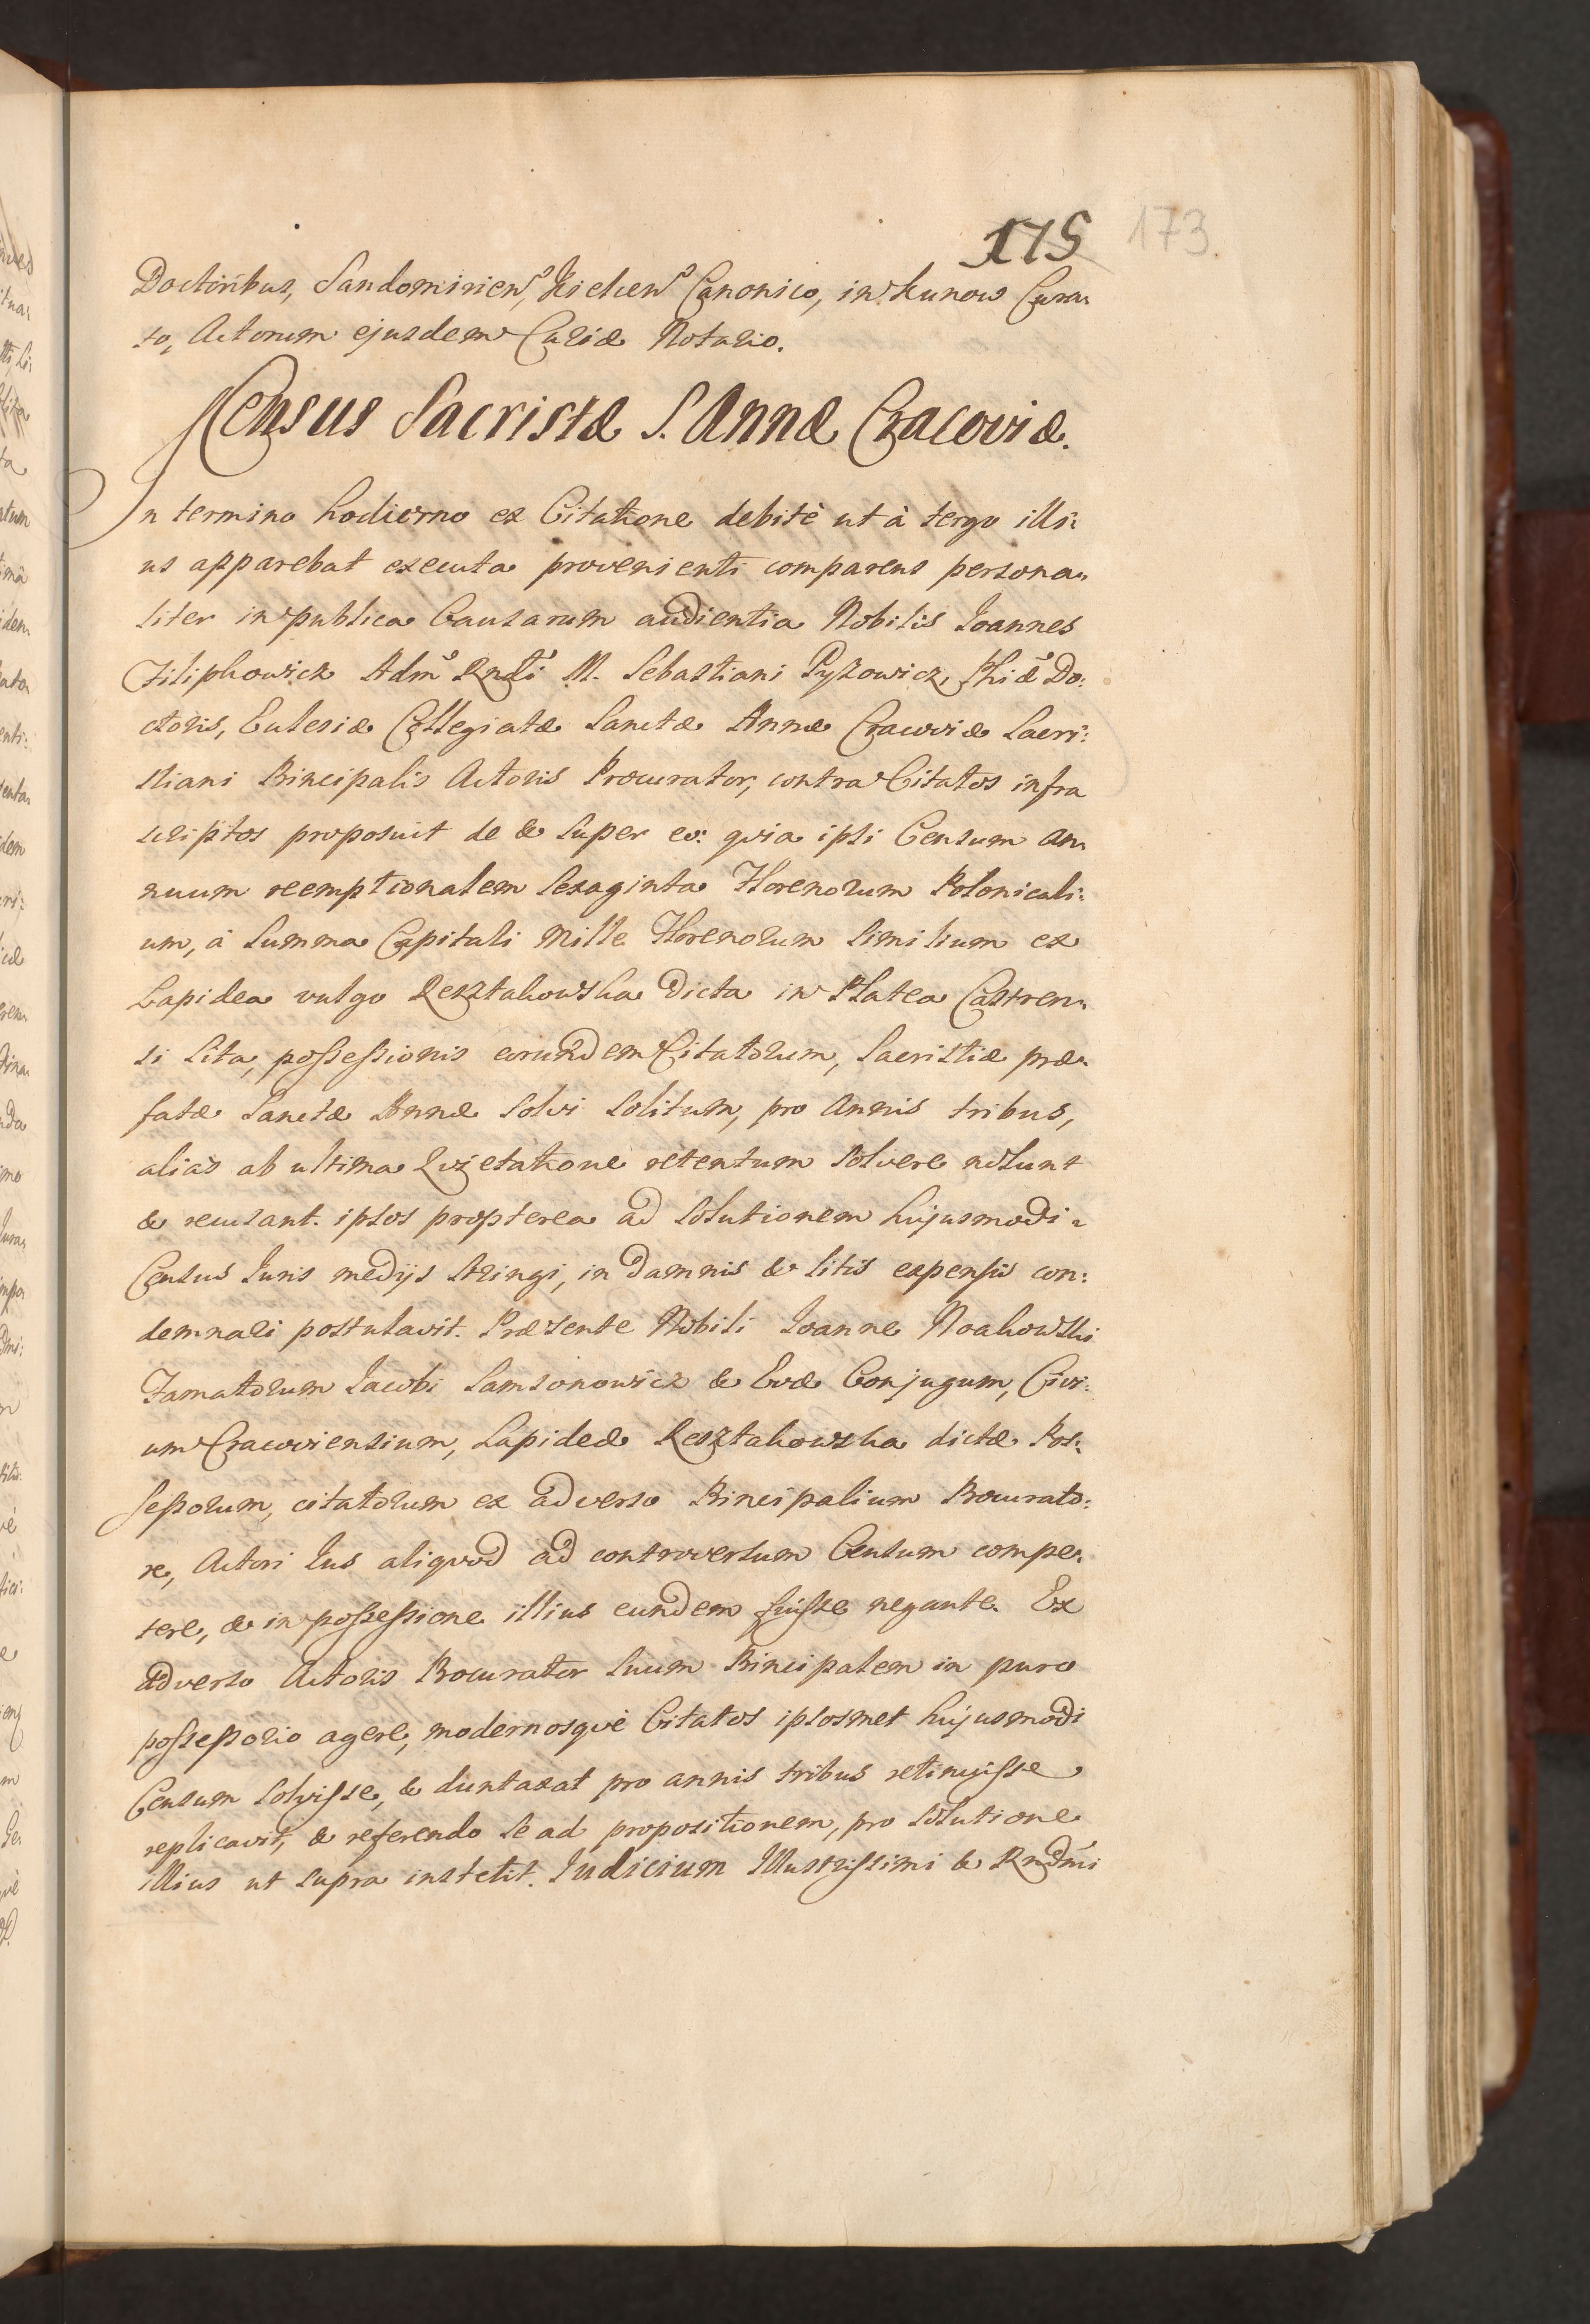 175 173
Doctoribus, Sandomirien, Kielcen Canonico, in Kunow Cura:
to, Actorum ejusdem Curiæ Notario.
Census Sacristæ S. Annæ Cracoviæ.
In termino hodierno ex Citatione debitè ut à tergo illi:
us apparebat executa provenienti comparens persona:
liter in publica Causarum audientia Nobilis Joannes
Filipkowicz Adm Rndi M. Sebastiani Pyzowicz, Phiæ Do:
ctoris, Eclesiæ Collegiatæ Sanctæ Annæ Cracoviæ Sacri:
stiani Principalis Actoris Procurator, contra Citatos infra
scriptos proposuit de & super eo: quia ipsi Censum an:
nuum reemptionalem Sexaginta Florenorum Polonicali:
um, à Summa Capitali Mille Florenorum similium ex
Lapidea vulgo Resztakowska dicta in Platea Castren:
si sita, possessionis eorundem Citatorum, Sacristiæ præ:
fatæ Sanctæ Annæ solvi solitum, pro annis tribus,
alias ab ultima Quietatione retentum solvere nolunt
& recusant. ipsos propterea ad solutionem hujusmodi
Census Juris medijs stringi, in damnis & litis expensis con:
demnari postulavit. Præsente Nobili Joanne Noakowski
Famatorum Jacobi Samsonowicz & Evæ Conjugum, Civi:
um Cracoviensium, Lapideæ Resztakowska dictæ Pos:
sessorum, citatorum ex adverso Principalium Procurato:
re, Actori Jus aliquod ad controversum Censum compe:
tere, & in possessione illius eundem fuisse negante. Ex
adverso Actoris Procurator suum Principalem in puro
possessorio agere, modernosquè Citatos ipsosmet hujusmodi
Censum solvisse, & duntaxat pro annis tribus retinuisse
replicavit, & referendo se ad propositionem, pro solutione
illius ut supra institit. Judicium Illustrissimi & Rndmi